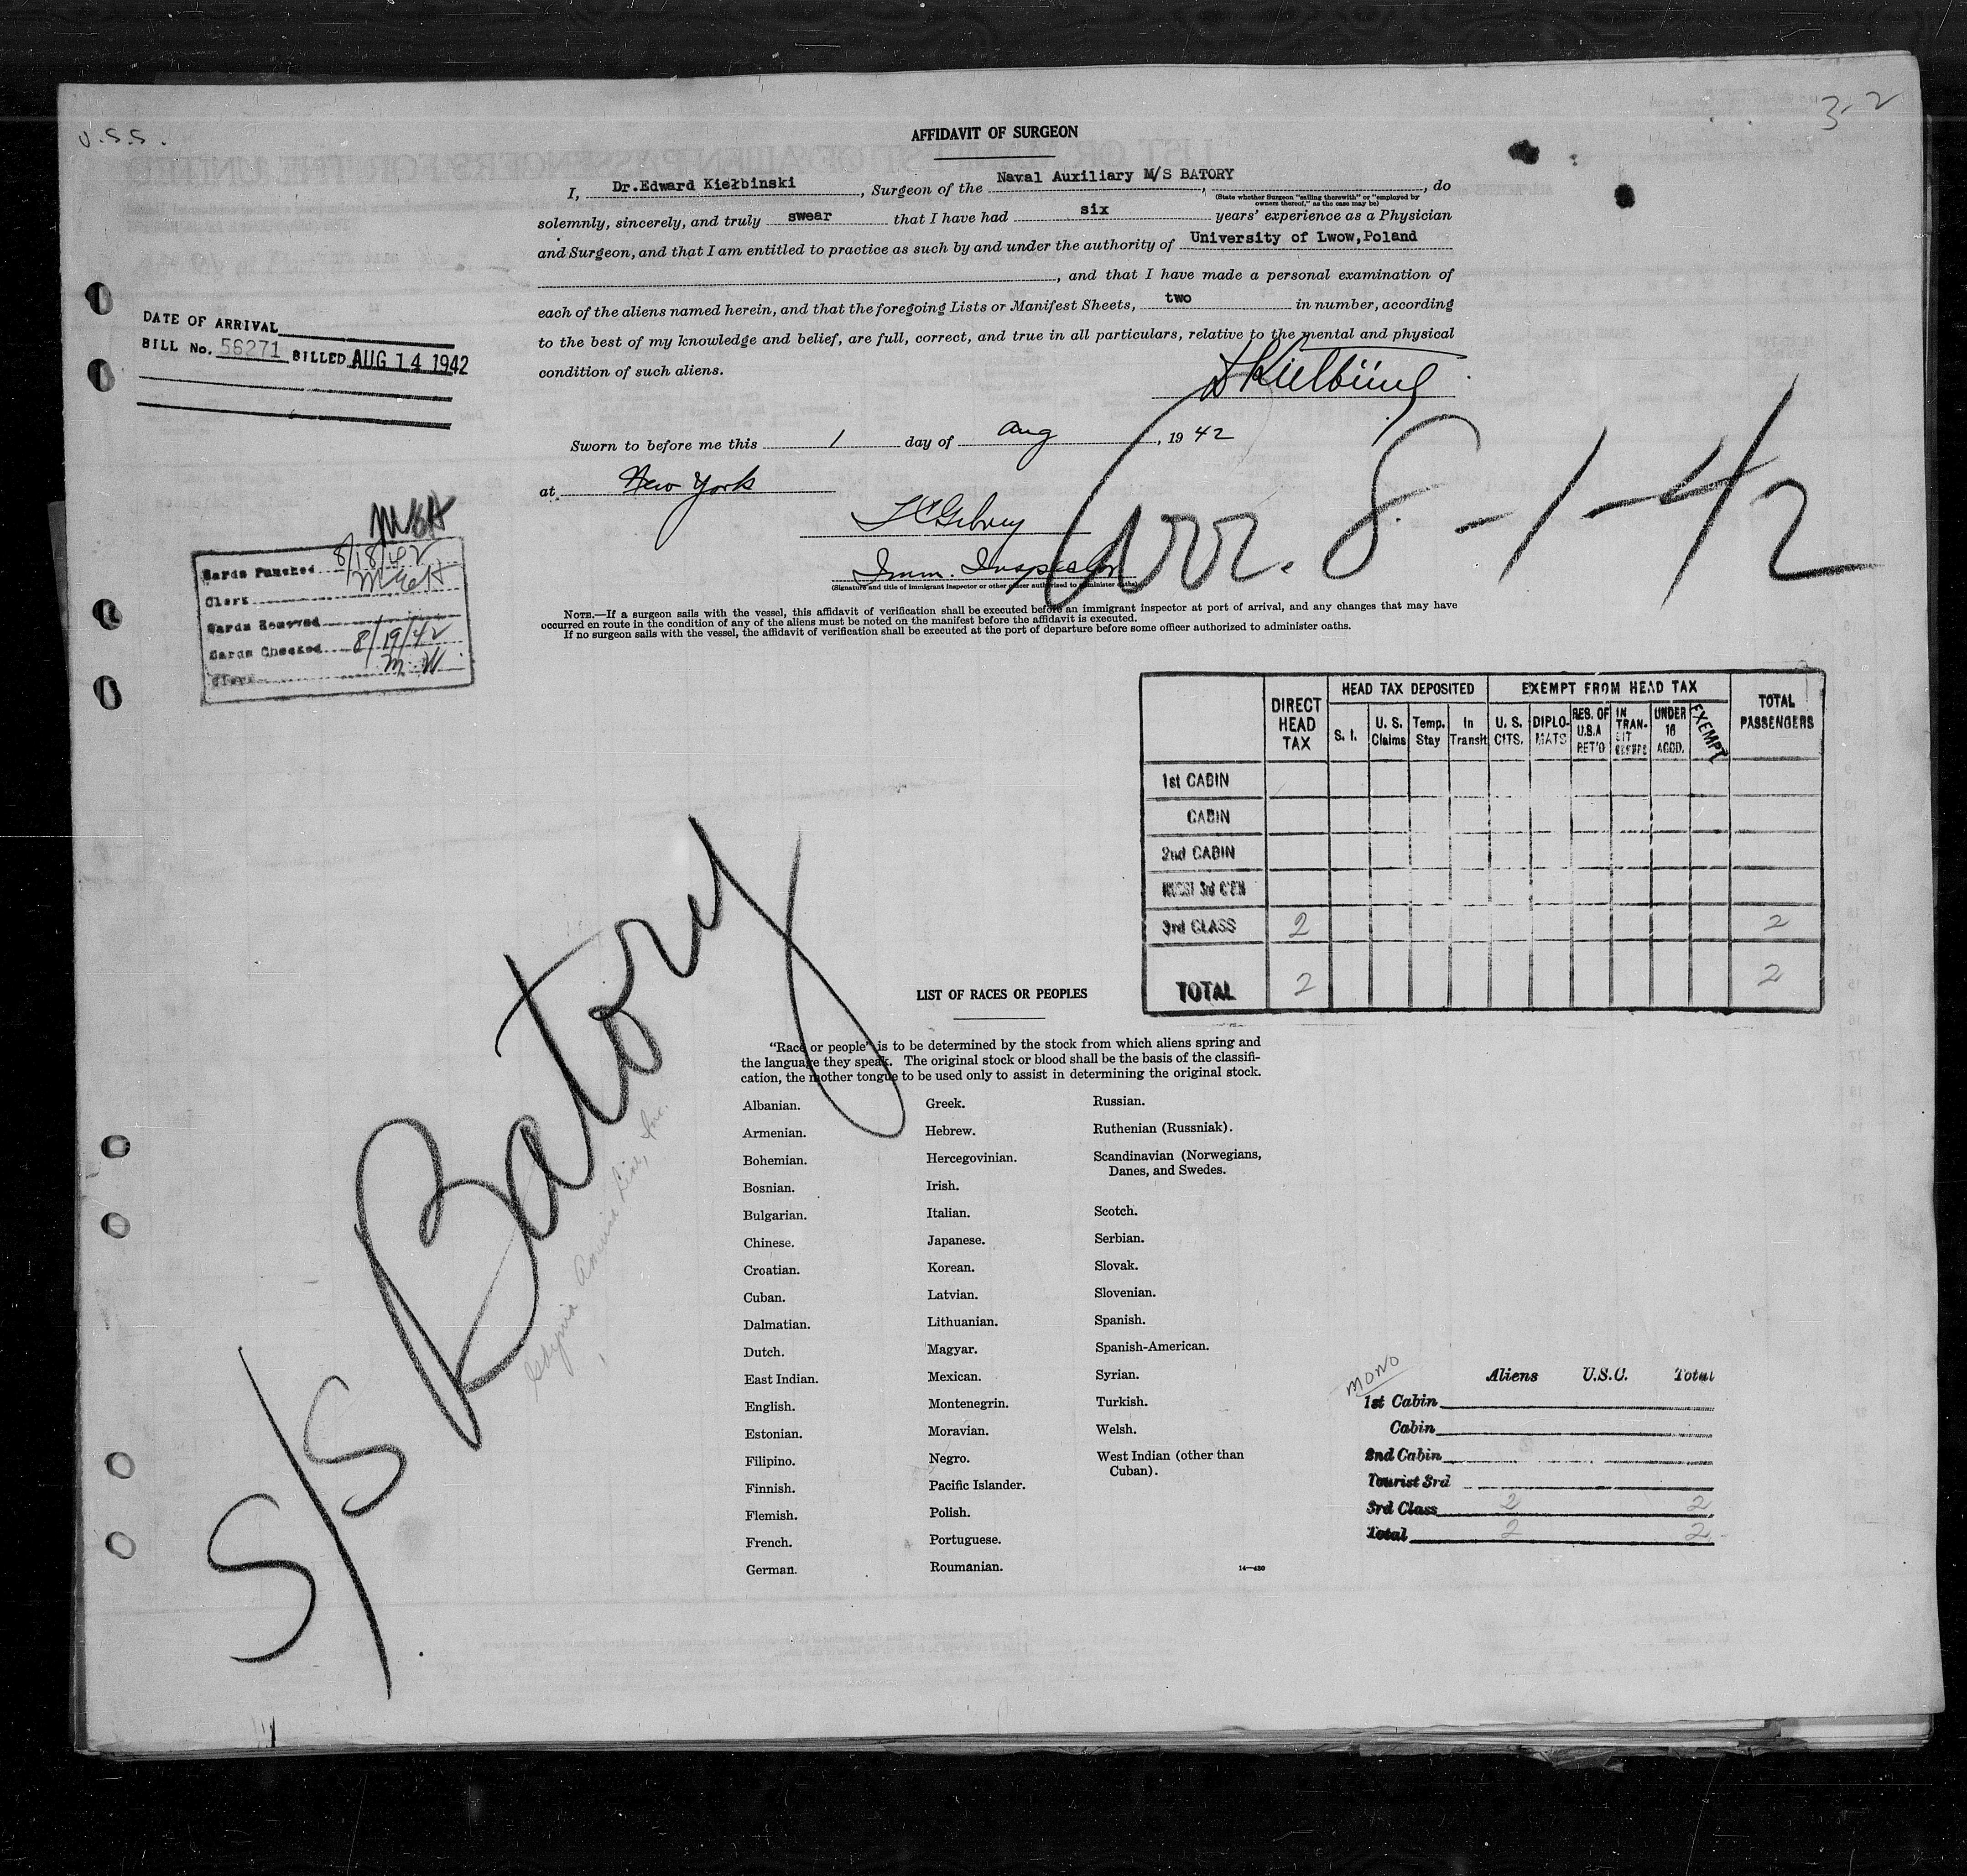 U.S.S.
32
AFFIDAVIT OF SURGEON
I, Dr.Edward Kiełbinski, Surgeon of the Naval Auxiliary M/S BATORY, , do
(State whether Surgeon "sailing therewith" or "employed by
owners thereof," as the case may be)
solemnly, sincerely, and truly swear that I have had six years' experience as a Physician
and Surgeon, and that I am entitled to practice as such by and under the authority of University of Lwow,Poland
, and that I have made a personal examination of
each of the aliens named herein, and that the foregoing Lists or Manifest Sheets, two in number, according
to the best of my knowledge and belief, are full, correct, and true in all particulars, relative to the mental and physical
condition of such aliens.
DATE OF ARRIVAL
BILL No. 56271 BILLED AUG 14 1942
Sworn to before me this 1 day of Aug, 1942
at New York
Imm. Inspector
(Signature and title of immigrant inspector or other officer authorized to administer oaths)
Arr. 8-1-42
Cards Punched 8/18/42
Clerk
Cards Reserved
Cards Checked 8/19/42
Clerk
NOTE.—If a surgeon sails with the vessel, this affidavit of verification shall be executed before an immigrant inspector at port of arrival, and any changes that may have
occurred en route in the condition of any of the aliens must be noted on the manifest before the affidavit is executed.
If no surgeon sails with the vessel, the affidavit of verification shall be executed at the port of departure before some officer authorized to administer oaths.
DIRECT HEAD TAX
HEAD TAX DEPOSITED
S. I. U. S. Claims Temp. Stay In Transit
EXEMPT FROM HEAD TAX
U. S. CITS. DIPLOMATS RES. OF U.S.A RET'D IN TRANSIT UNDER 16 ACCD. EXEMPT
TOTAL PASSENGERS
1st CABIN
CABIN
2nd CABIN
3rd CLASS 2 2
TOTAL 2 2
S/S Batory
Gdynia America Line, Inc.
LIST OF RACES OR PEOPLES
"Race or people" is to be determined by the stock from which aliens spring and
the language they speak. The original stock or blood shall be the basis of the classifi-
cation, the mother tongue to be used only to assist in determining the original stock.
Albanian.
Armenian.
Bohemian.
Bosnian.
Bulgarian.
Chinese.
Croatian.
Cuban.
Dalmatian.
Dutch.
East Indian.
English.
Estonian.
Filipino.
Finnish.
Flemish.
French.
German.
Greek.
Hebrew.
Hercegovinian.
Irish.
Italian.
Japanese.
Korean.
Latvian.
Lithuanian.
Magyar.
Mexican.
Montenegrin.
Moravian.
Negro.
Pacific Islander.
Polish.
Portuguese.
Roumanian.
Russian.
Ruthenian (Russniak).
Scandinavian (Norwegians,
Danes, and Swedes.
Scotch.
Serbian.
Slovak.
Slovenian.
Spanish.
Spanish-American.
Syrian.
Turkish.
Welsh.
West Indian (other than
Cuban).
14—430
MONO
Aliens U.S.C. Total
1st Cabin
Cabin
2nd Cabin
Tourist 3rd
3rd Class 2 2
Total 2 2